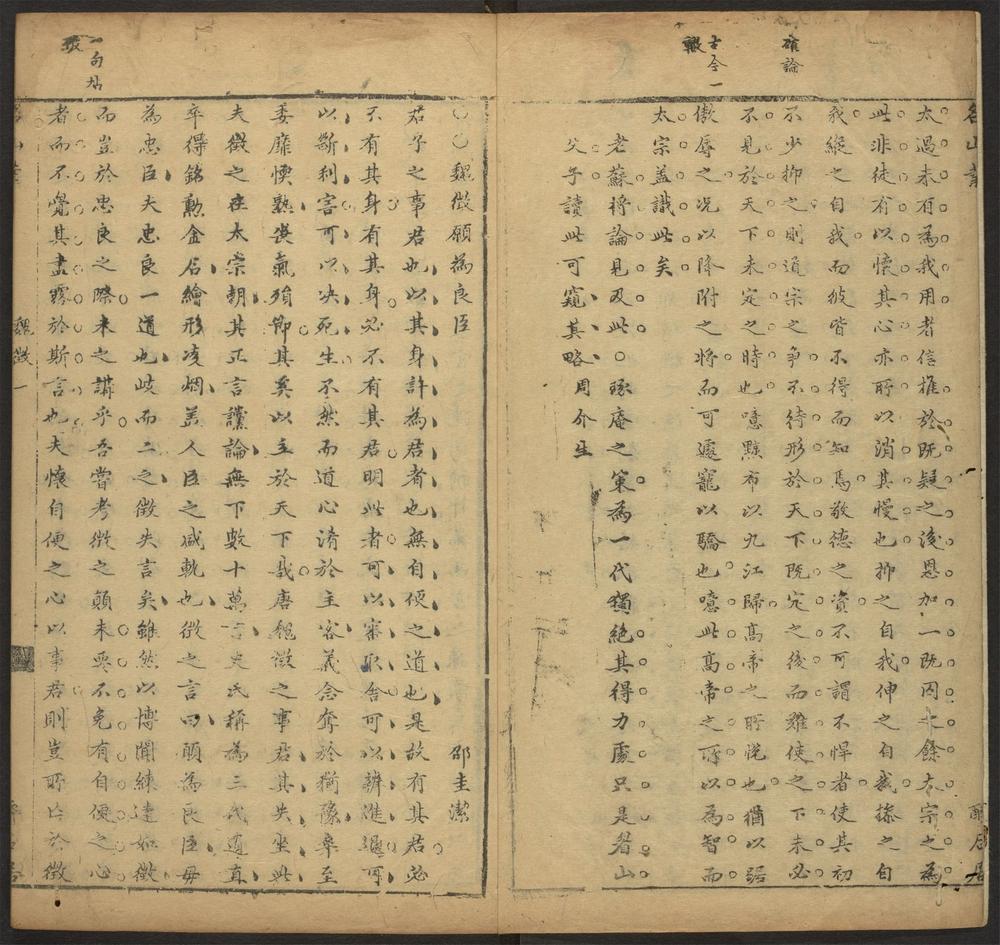 確論
古今一
轍
名山業
太過未有為我用者信推於既疑之後恩加一既囚之餘太宗之為
此非徒有以懷其心亦所以消其慢也抑之自我伸之自我操之自
我縱之自我而彼皆不得而知焉敬德之資不可謂不悍者使其初
不少抑之則道宗之爭不待形於天下既定之後而難使之下未必
不見於天下未定之時也噫黥布以九江歸高帝之所悅也猶以踞
傲辱之况以降附之將而可遽寵以驕也噫此高帝之所以為智而
太宗盖識此矣
老蘇將論見及此○琢庵之策為一代獨絕其得力處只是眉山
父子讀此可窺其略周介生
一句站
○○魏徵願為良臣
邵圭潔
君子之事君也以其身許為君者也無自便之道也是故有其君必
不有其身有其身必不有其君明此者可以審取舍可以辨進退可
以斷利害可以决死生不然而道心淆於主客義念奪於猶豫卒至
委靡懦熟喪氣殞節其奚以立於天下哉唐魏徵之事君其失坐此
夫徵之在太宗朝其正言讜論無下數十萬言史氏稱為三代遺直
卒得銘勳金石繪形凌烟盖人臣之盛軌也徵之言曰願為良臣毋
為忠臣夫忠良一道也歧而二之徵失言矣雖然以博聞練達如徵
而豈於忠良之際未之講乎吾嘗考徵之顛末要不免有自便之心
者而不覺其盡露於斯言也夫懷自便之心以事君則豈所以於徵
魏徵一